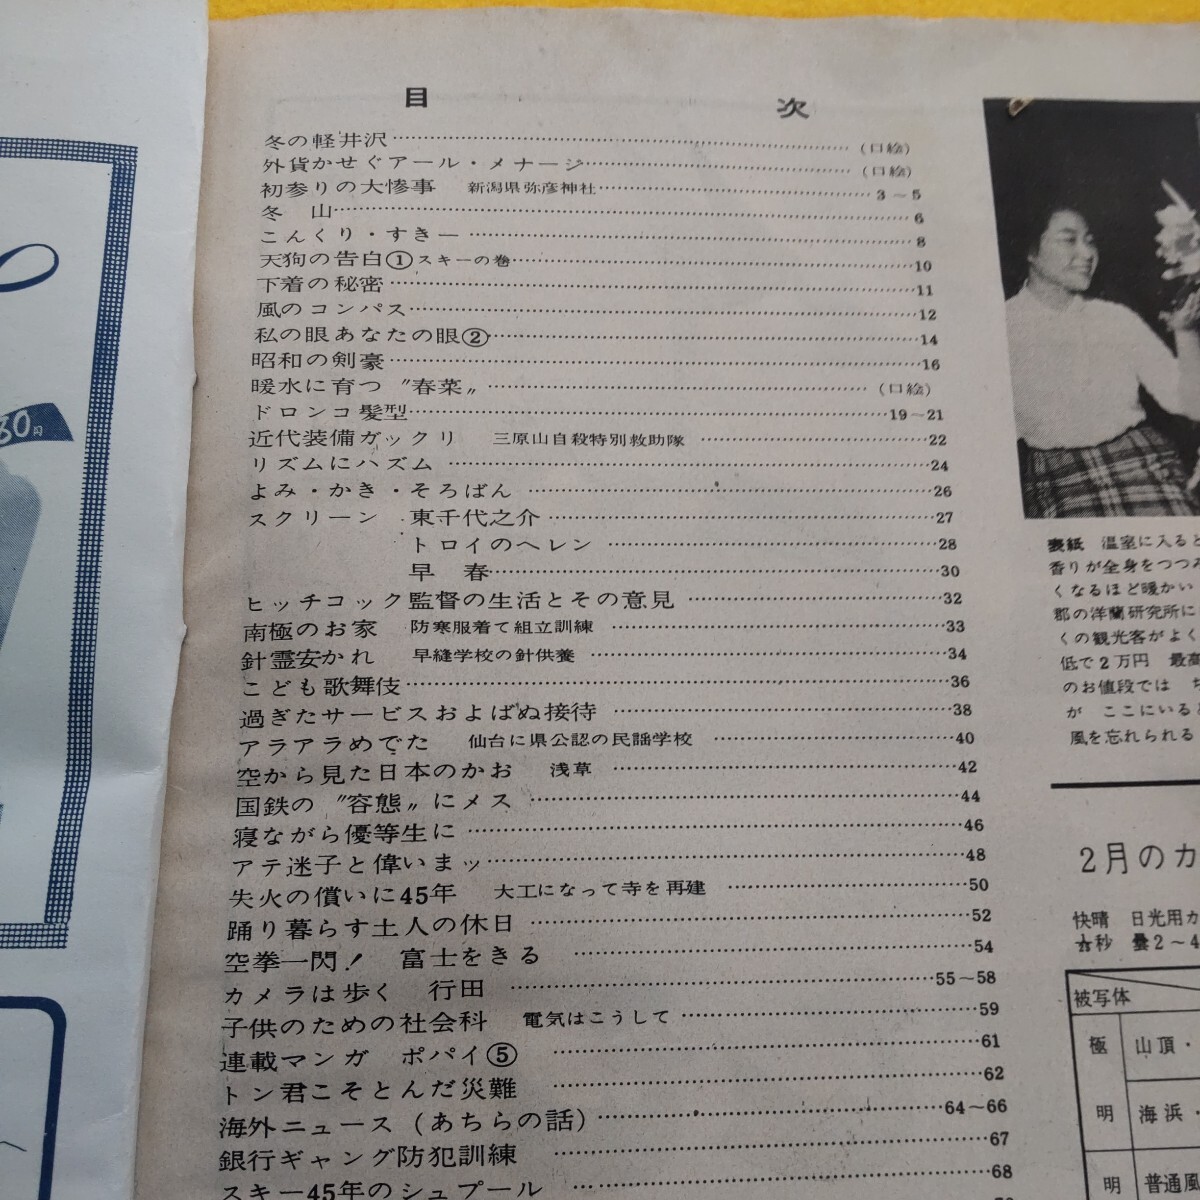 目次
冬の軽井沢……(口絵)
外貨かせぐアール・メナージ……(口絵)
初参りの大惨事 新潟県弥彦神社……3～5
冬 山……6
こんくり・すきー……8
天狗の告白① スキーの巻……10
下着の秘密……11
風のコンパス……12
私の眼あなたの眼②……14
昭和の剣豪……16
暖水に育つ〝春菜〟……(口絵)
ドロンコ髪型……19～21
近代装備ガックリ 三原山自殺特別救助隊……22
リズムにハズム……24
よみ・かき・そろばん……26
スクリーン 東千代之介……27
トロイのヘレン……28
早 春……30
ヒッチコック監督の生活とその意見……32
南極のお家 防寒服着て組立訓練……33
針霊安かれ 早縫学校の針供養……34
こども歌舞伎……36
過ぎたサービスおよばぬ接待……38
アラアラめでた 仙台に県公認の民謡学校……40
空から見た日本のかお 浅草……42
国鉄の〝容態〟にメス……44
寝ながら優等生に……46
アテ迷子と偉いまッ……48
失火の償いに45年 大工になって寺を再建……50
踊り暮らす土人の休日……52
空拳一閃！ 富士をきる……54
カメラは歩く 行田……55～58
子供のための社会科 電気はこうして……59
連載マンガ ポパイ⑤……61
トン君こそとんだ災難……62
海外ニュース(あちらの話)……64～66
銀行ギャング防犯訓練……67
スキー45年のシュプール……68
80円
表紙 温室に入ると
香りが全身をつつみ
くなるほど暖かい
郡の洋蘭研究所に
くの観光客がよく
低で2万円 最高
のお値段では
が ここにいると
風を忘れられる
2月のカ
快晴 日光用カ
秒 曇2～4
被写体
極 山頂・
明 海浜・
明 普通風